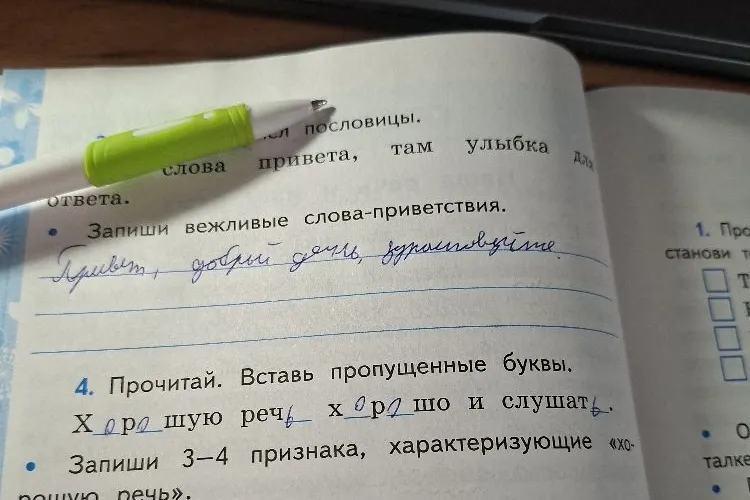 пословицы.
слова привета, там улыбка для
ответа.
• Запиши вежливые слова-приветствия.
Привет, добрый день, здравствуйте.
4. Прочитай. Вставь пропущенные буквы.
Хорошую речь хорошо и слушать.
• Запиши 3—4 признака, характеризующие «хо-
рошую речь».
1. Про
станови т
Т
• О
талке
•